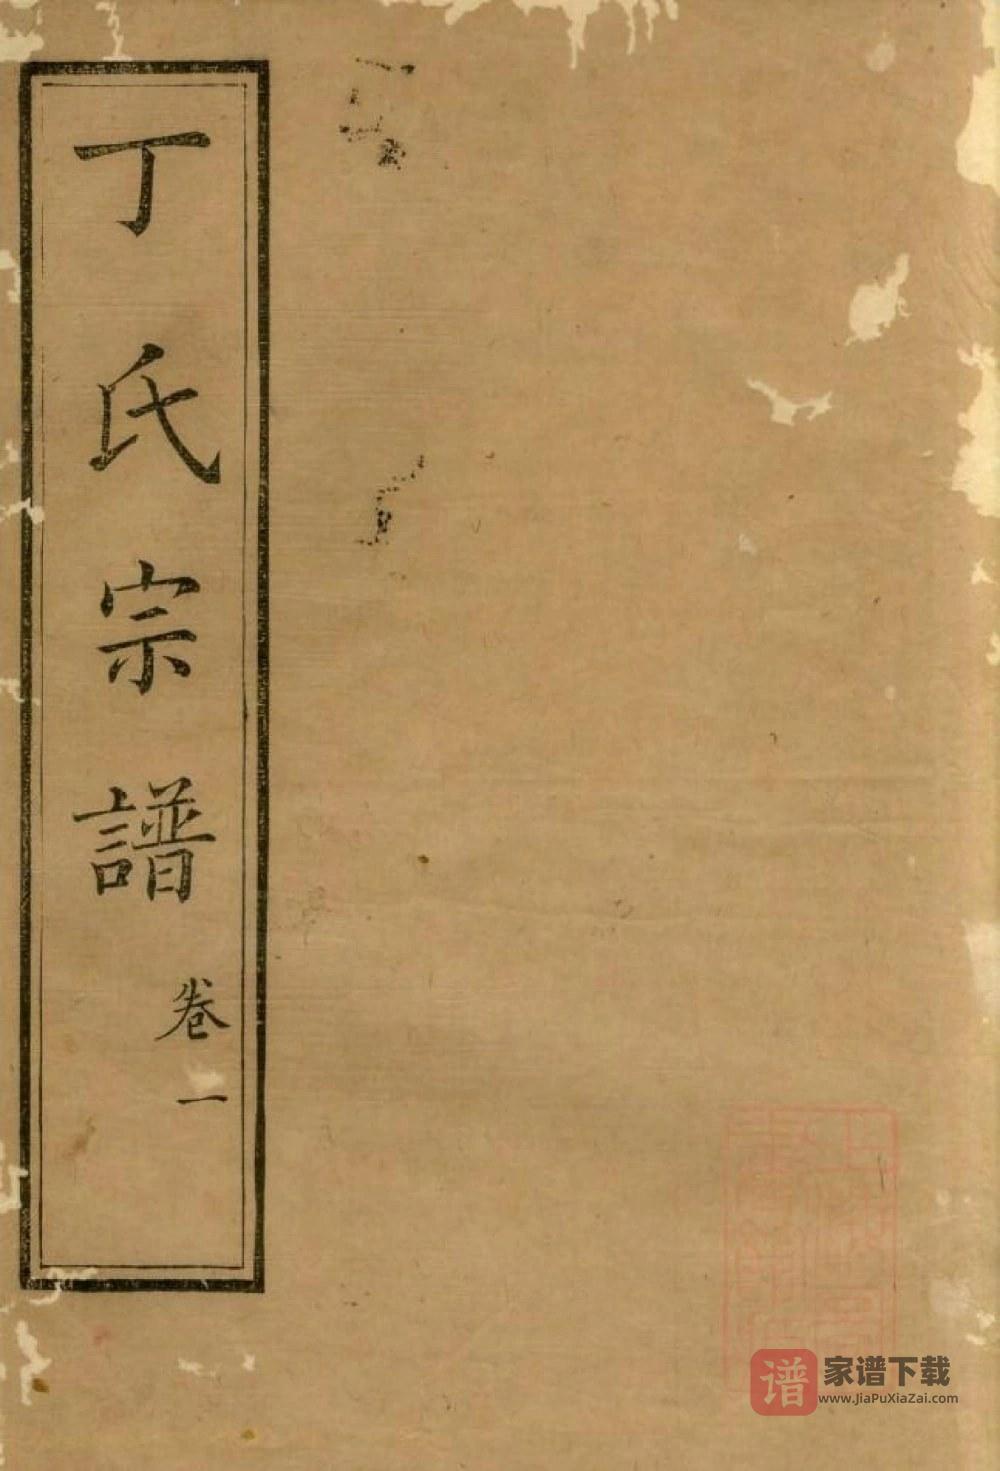 丁氏宗譜
卷一
谱
家谱下载
www.JiaPuXiaZai.com